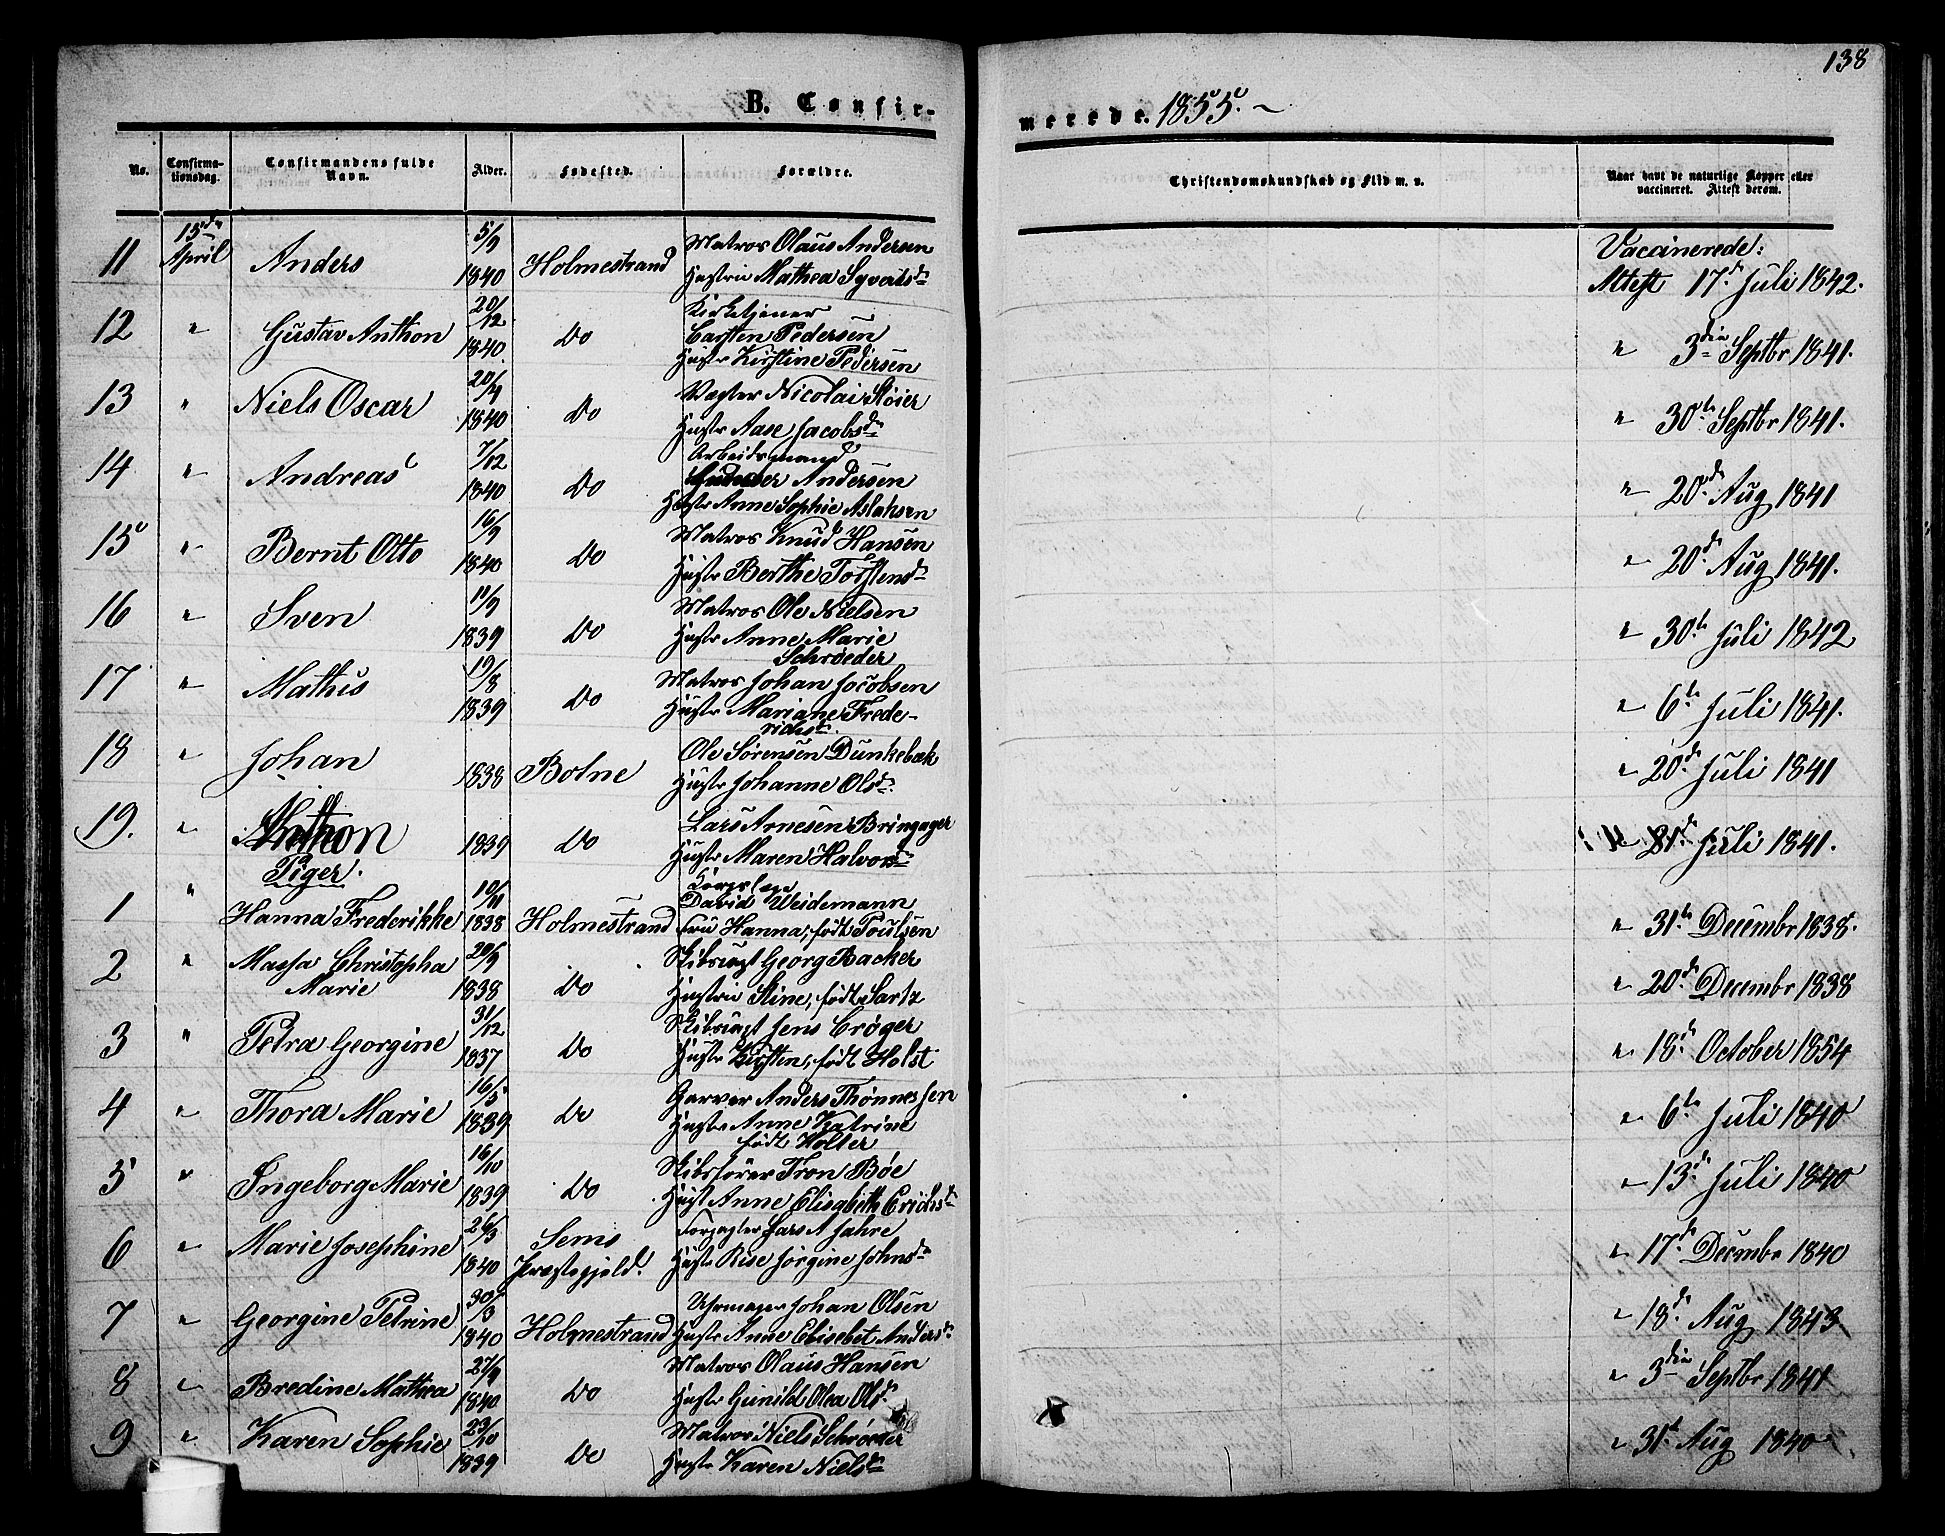 138
B. Confirmerede. 1855.
No.
Confirmationsdag.
Confirmandens fulde Navn.
Alder.
Fødested.
Forældre.
Christendomskundskab og Flid m. v.
Naar havt de naturlige Kopper eller vaccineret. Attest derom.
11 15de April Anders 5/9 1840 Holmestrand Matros Olaus Andersen
Hustru Mathea Syvertsdr
Vaccinerede:
Attest 17de Juli 1842.
12 " Gustav Anthon 20/12 1840. Do Kirketjener
Carsten Pedersen
Hustr Kirstine Pedersen
" 3die Septbr 1841.
13 " Niels Oscar 20/4 1840 Do Vægter Nicolai Støier
Hustr Aase Jacobsdr
" 30te Septbr 1841.
14 " Andreas 7/12 1840 Do Arbeidsmand
Andersen
Hustr Anne Sophie Aslaksen
" 20de Aug 1841
15 " Bernt Otto 16/9 1840 Do Matros Knud Hansen
Hustr Berthe Torstensdr
" 20de Aug 1841.
16 " Sven 11/9 1839 Do Matros Ole Nielsen
Hustr Anne Marie
Schrøeder
" 30te Juli 1842
17 " Mathis 19/8 1839 Do Matros Johan Jocobsen
Hustr Mariane Frede-
ricksdr
" 6te Juli 1841.
18 " Johan 1838 Botne Ole Sørensen Dunkebæk
Hustr Johanne Olsdr
" 20de Juli 1841
19. " Anthon 1839 Do Lars Arnesen Bringager
Hustr Maren Halvorsdr
" 21de Juli 1841.
Piger.
1 " Hanna Frederikke 10/11 1838 Holmestrand Korpslæge
David Weidemann
Fru Hanna, født Poulsen
" 31te Decembr 1838.
2 " Massa Christopha
Marie 20/9 1838 Do Skibsrigt Georg Backer
Hustru Stine, født Sartz
" 20de Decembr 1838
3 " Petra Georgine 31/12 1837 Do Skibsrigt Jens Crøger
Hustr Kirsten, født Holst
" 18de October 1854
4 " Thora Marie 16/5 1839 Do Garver Anders Thønnessen
Hustr Anne Katrine
født Holter
" 6te Juli 1840
5 " Ingeborg Marie 16/10 1839 Do Skibsfører Tron Bøe
Hust Anne Elisabeth Erichsdr
" 13de Juli 1840
6 " Marie Josephine 26/3 1840 Sems
Præstegjeld. Forpagter Lars A Jahre
Hustr Rise Jørgine Johnsdr
" 17de Decmbr 1840
7 " Georgine Petrine 30/3 1840 Holmestrand Uhrmager Johan Olsen
Hustr Anne Elisebet Andersdr
" 18de Aug 1843
8 " Bredine Mathea 27/9 1840 Do Matros Olaus Hansen
Hustr Gunild Olea Olsdr
" 3die Septbr 1841
9 " Karen Sophie 23/10 1839 Do Matros Niels Schrøeder
Hustr Karen Nielsdr
" 31te Aug 1840